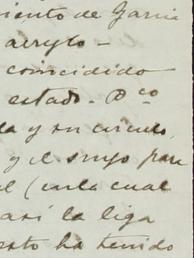 iento de Garcia
coincidido
estado. Pco
la y su círculo,
y el suyo para
l (en la cual
así la liga
esto ha tenido